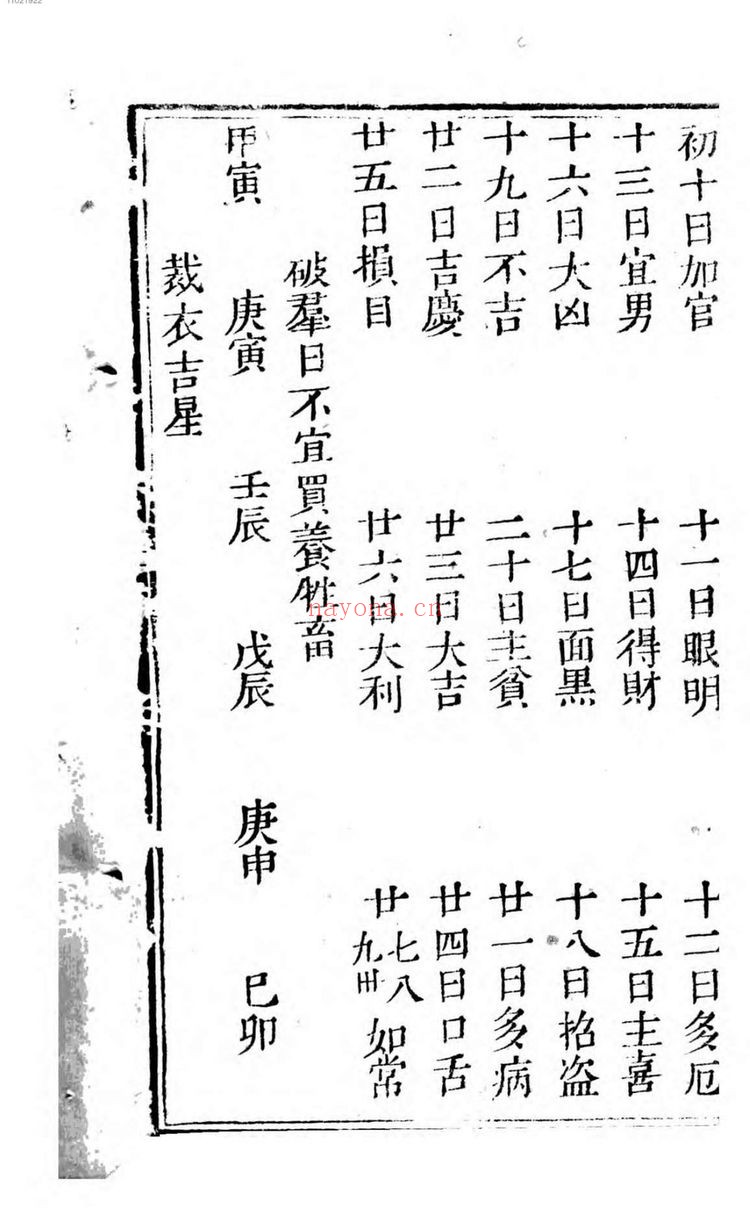 11021922
初十日加官 十一日眼明 十二日多厄
十三日宜男 十四日得財 十五日主喜
十六日大凶 十七日面黑 十八日招盗
十九日不吉 二十日主貧 廿一日多病
廿二日吉慶 廿三日大吉 廿四日口舌
廿五日損目 廿六日大利 廿七八九卅如常
破羣日不宜買養牲畜
甲寅 庚寅 壬辰 戊辰 庚申 巳卯
裁衣吉星
nayona.cn